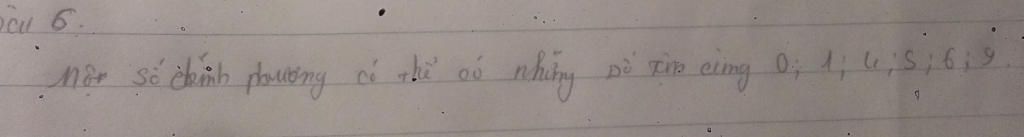 Câu 6.
Một số chính phương có thể có những số tận cùng 0; 1; 4; 5; 6; 9.